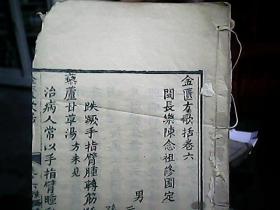 金匱方歌括卷六
閩長樂陳念祖修園定
男
趺蹶手指臂腫轉筋
藜蘆甘草湯方未見
治病人常以手指臂腫